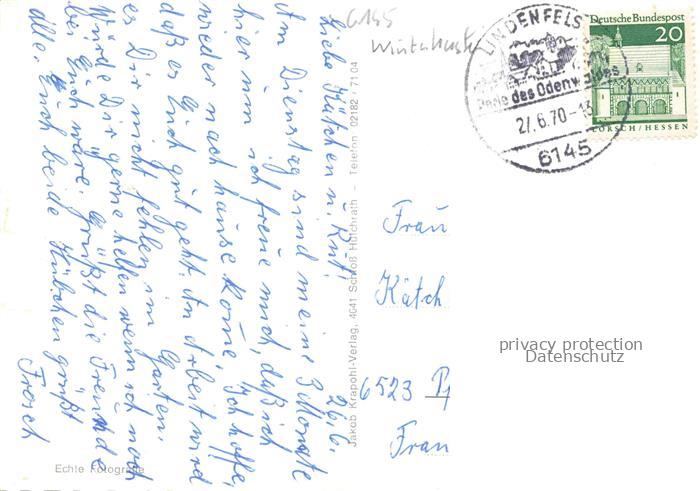 26.6.
Liebe Kätchen u. Kurt,
Am Dienstag sind meine 3 Monate
hier um, ich freue mich, daß ich
wieder nach hause kome. Ich hoffe,
daß es Euch gut geht. An Arbeit wird
es Dir nicht fehlen im Garten.
Würde Dir gerne helfen wenn ich noch
bei Euch wäre. Grüßt die Freunde
alle. Euch beide Hübchen grüßt
Frosch
Echte Fotografie
Jakob Krapohl-Verlag, 4041 Schloß Hülchrath – Telefon 02182 - 7104
6145
LINDENFELS
Perle des Odenwaldes
27.6.70-13
6145
Deutsche Bundespost
20
LORSCH/HESSEN
Frau
Kätch
6523
Fran
privacy protection
Datenschutz